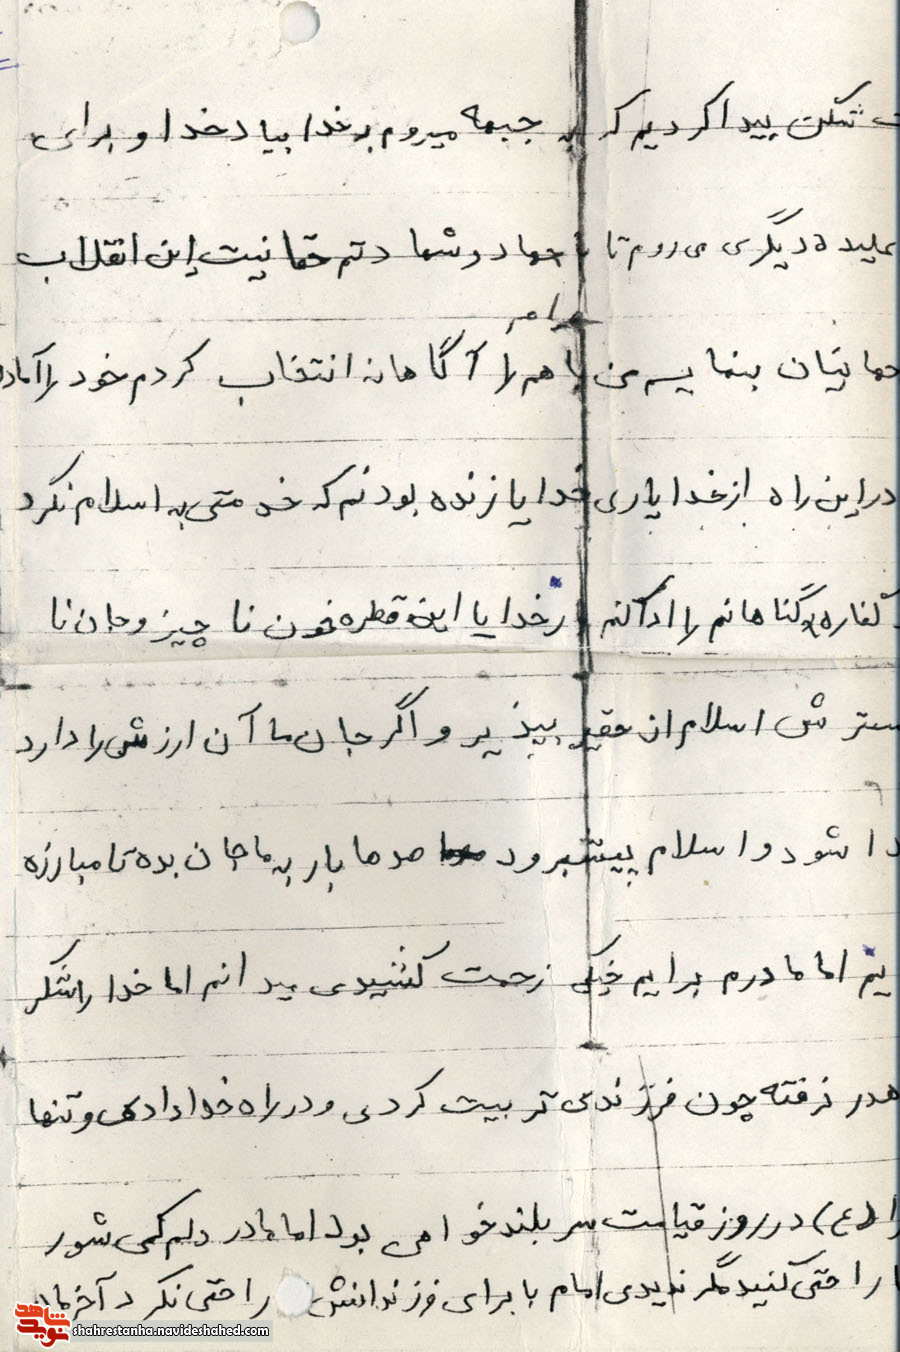 شکن پیدا کردیم که به جبهه میروم بر خدا بیاد خدا و برای
دیگری می روم تا با جهاد و شهادتم حقانیت این انقلاب
راهم
بنمایم من راهم را آگاهانه انتخاب کردم خود را آماده
در این راه از خدا یاری خدایا زنده بودنم که خدمتی به اسلام نکرد
کفاره گناهانم را ادا کنم خدایا این قطره خون نا چیز و جان نا
اسلام از حقیر بپذیر و اگر جان ما آن ارزش را دارد
شود و اسلام پیشبرود صدها بار به ما جان بده تا مبارزه
اما مادرم برایم خیلی زحمت کشیدی میدانم اما خدا را شکر
هدر نرفته چون فرزندی تربیت کردی و در راه خدا دادی و تنها
(ع) در روز قیامت سر بلند خواهی بود اما مادر دلم کمی شور
را حتی کنید مگر ندیدی امام با برای فرزندانش را حتی نکرد آخر
شاهد
نوید
shahrestanha.navideshahed.com